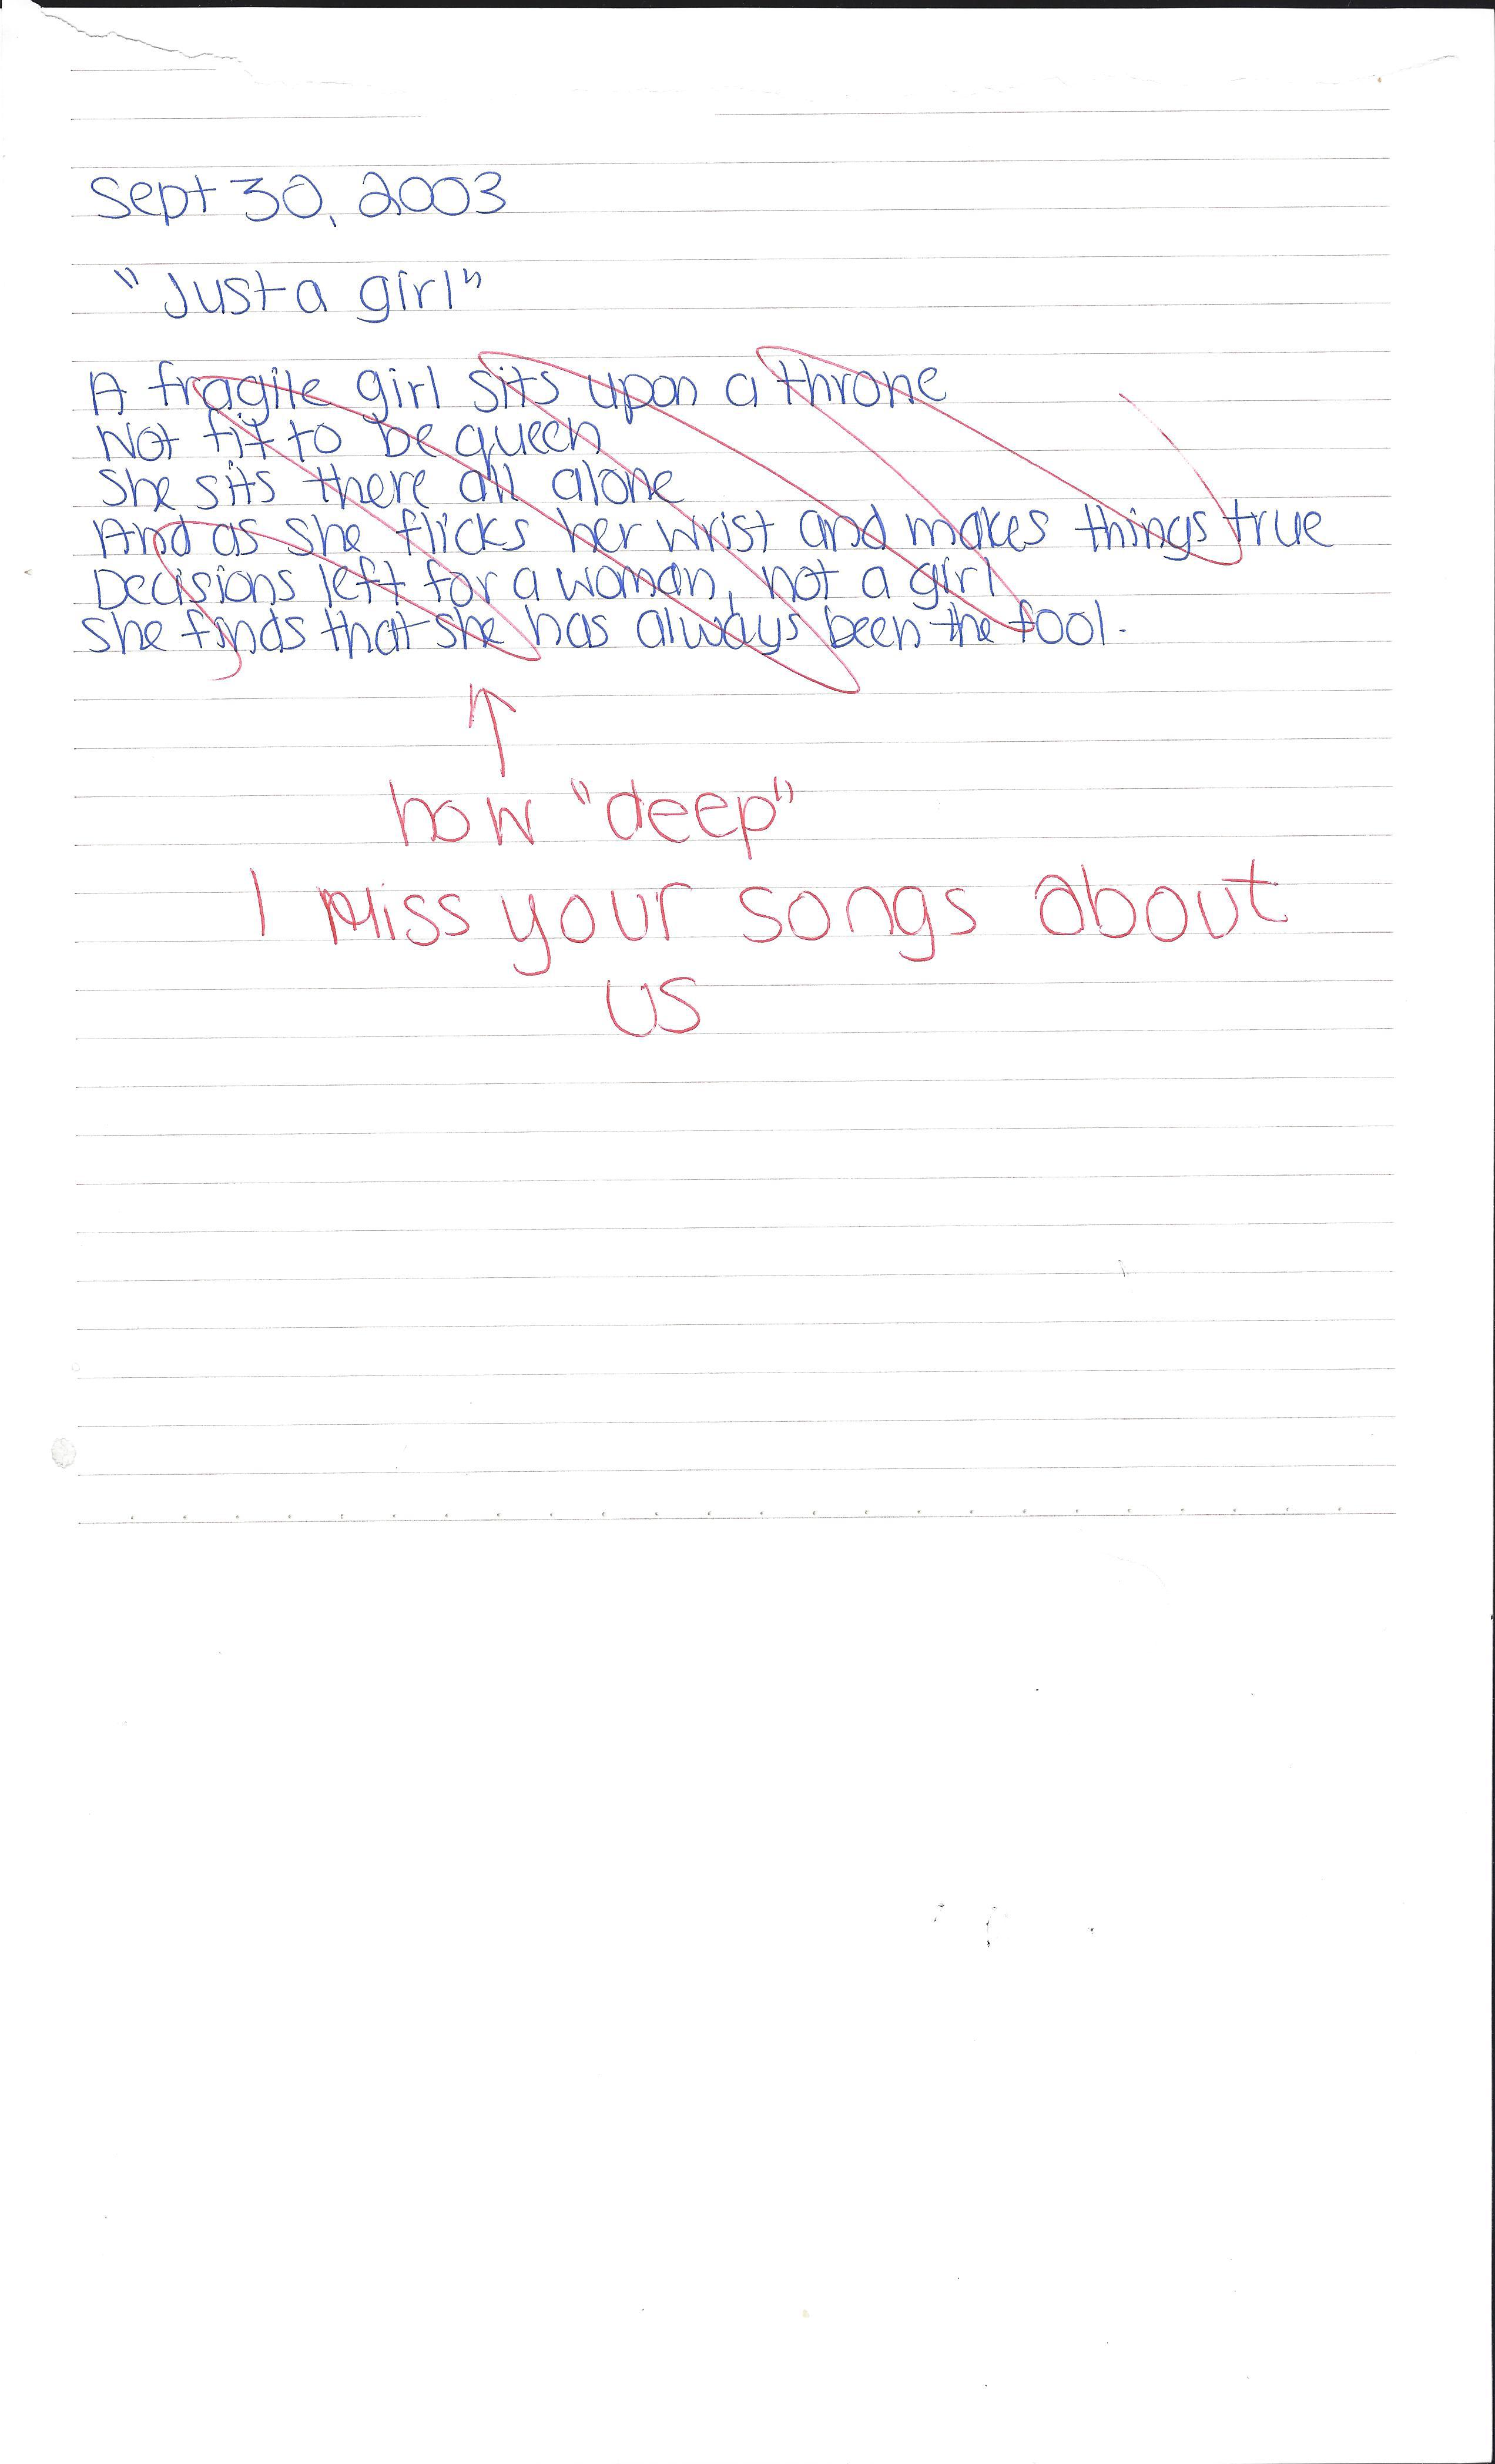 Sept 30, 2003
"Just a girl"
A fragile girl sits upon a throne
Not fit to be queen
She sits there all alone
And as she flicks her wrist and makes things true
Decisions left for a woman, not a girl
She finds that she has always been the fool.
how "deep"
I miss your songs about
us